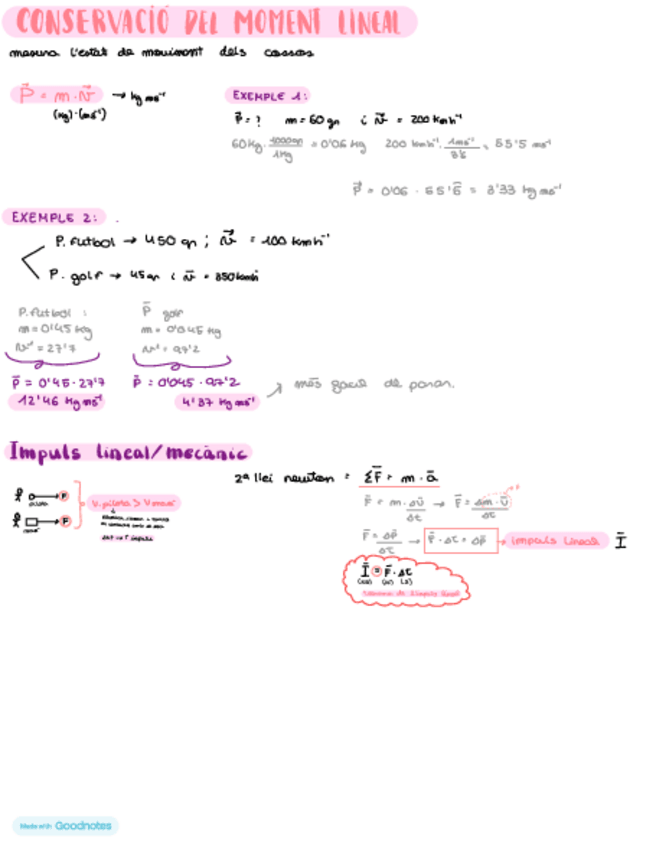 CONSERVACIÓ DEL MOMENT LINEAL
mesura l'estat de moviment dels cossos
P⃗ = m · v⃗ → kg ms⁻¹
(kg) · (ms⁻¹)
EXEMPLE 1:
P⃗ = ? m = 60 gr i v⃗ = 200 kmh⁻¹
60 kg · 1000gr / 1kg = 0'06 kg 200 kmh⁻¹ · 1ms⁻¹ / 3'6 = 55'5 ms⁻¹
P⃗ = 0'06 · 55'6 = 3'33 kg ms⁻¹
EXEMPLE 2:
P. futbol → 450 gr ; v⃗ = 100 kmh⁻¹
P. golf → 45 gr i v⃗ = 350 kmh
P. futbol :
m = 0'45 kg
v⃗ = 27'7
P̄ = 0'45 · 27'7
12'46 kg ms⁻¹
P̄ golf
m = 0'045 kg
v⃗ = 97'2
P̄ = 0'045 · 97'2
4'37 kg ms⁻¹
més fàcil de parar.
Impuls lineal/mecànic
F
F
V. pilota > V
2ª llei newton = ΣF̄ = m · ā
F̄ = m · Δv̄ / Δt → F̄ = Δm · v̄ / Δt
F̄ = Δp̄ / Δt → F̄ · Δt = Δp̄ → impuls lineal Ī
Ī = F̄ · Δt
(N) (s)
Made with Goodnotes